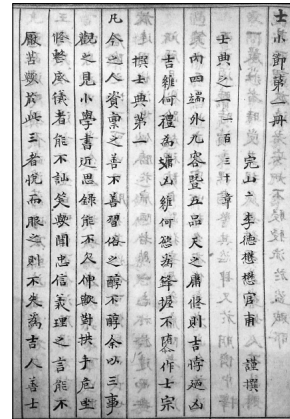 士小節第一冊
完山 李德懋懋官甫 謹撰
士典之一 一百三十章
內四端外九容曁五品天之庸修則吉悖迺凶
吉維何禮為墉凶維何慾為鋒握不隳作士宗
撰士典第一
凡今之人資稟之善不善習俗之醇不醇余以三事
觀之見小學書近思錄能不欠伸歟對拱手危坐
修整威儀者能不訕笑歟聞忠信義理之言能不
厭苦歟於此三者悅而服之則不失為吉人善士